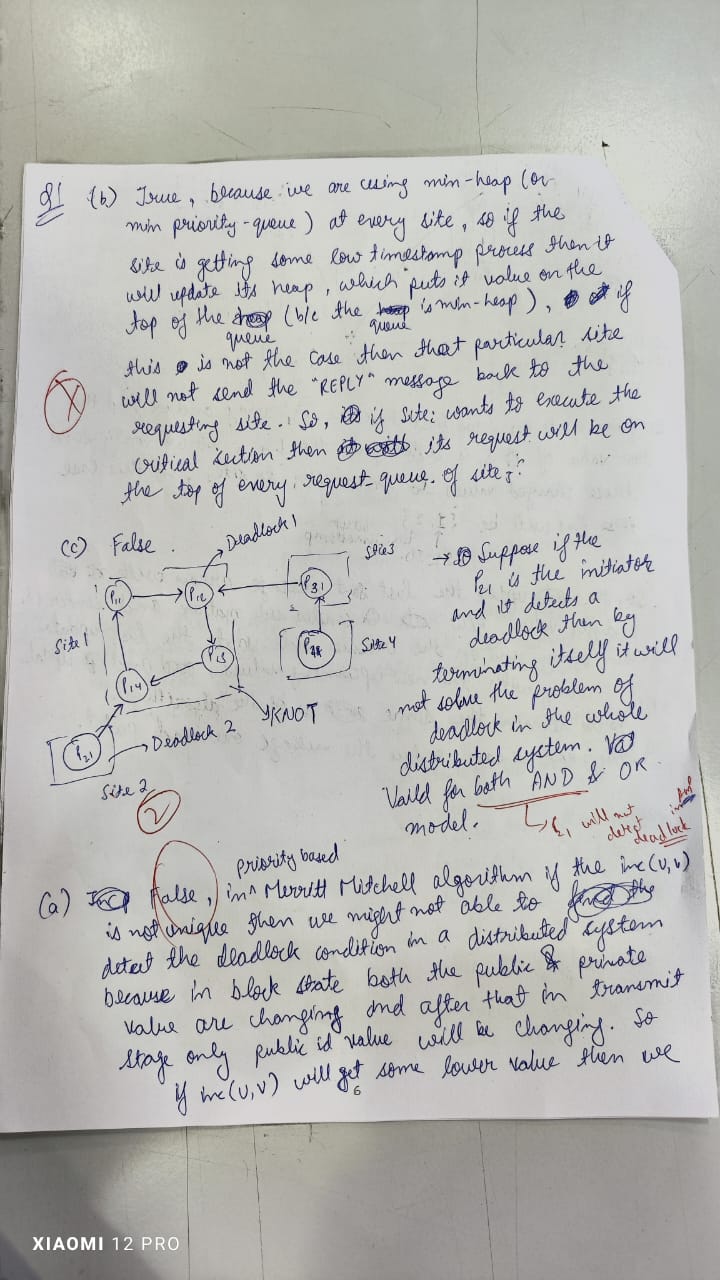 Q1 (b) True, because we are using min-heap (or
min priority-queue) at every site, so if the
site is getting some low timestamp process then it
will update its heap, which puts it value on the
top of the queue (b/c the queue is min-heap), if
this is not the case then that particular site
will not send the "REPLY" message back to the
requesting site. So, if Sitei wants to execute the
critical section then its request will be on
the top of every request-queue of sitej?
X
(c) False.
Deadlock 1
Site3
P11
P12
P31
Site 1
Site 4
P13
P14
KNOT
P21
Deadlock 2
Site 2
→ Suppose if the
P21 is the initiator
and it detects a
deadlock then by
terminating itself it will
not solve the problem of
deadlock in the whole
distributed system.
Vaild for both AND & OR
model.
2
will not
detect in AND
deadlock
priority based
(a) False, in^ Merritt Mitchell algorithm if the inc(u,v)
is not unique then we might not able to
detect the deadlock condition in a distributed system
because in block state both the public & private
value are changing and after that in transmit
stage only public id value will be changing. So
if inc(u,v) will get some lower value then we
6
XIAOMI 12 PRO